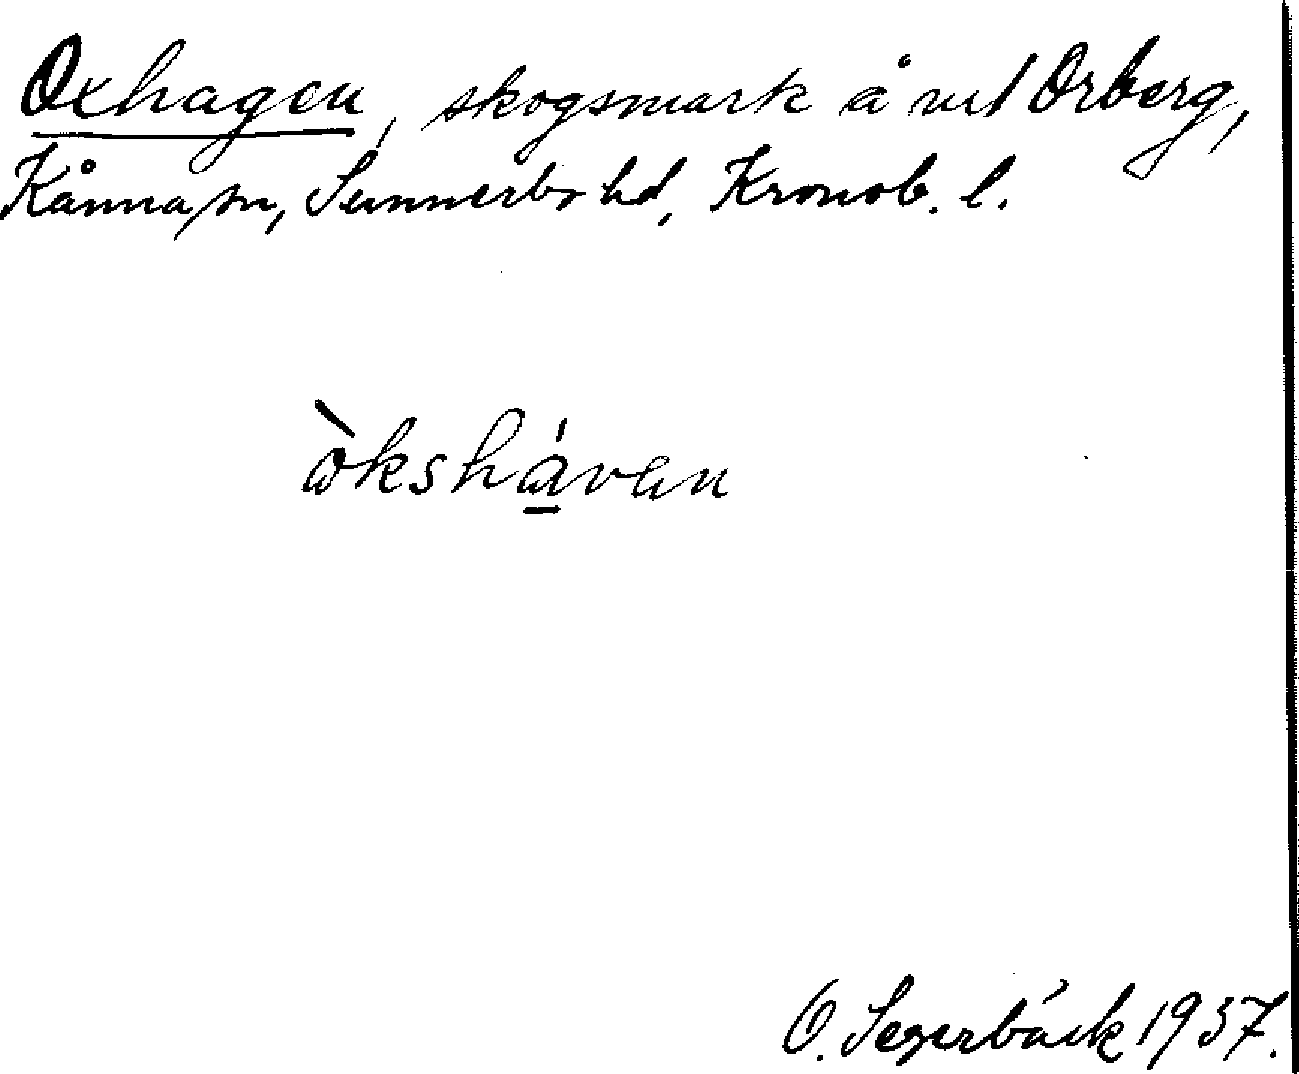 Oxhagen, skogsmark å vid Orberg,
Kånna sn, Sunnerbo hd, Kronob. l.
òkshá̱vεn
O. Segerbäck 1937.